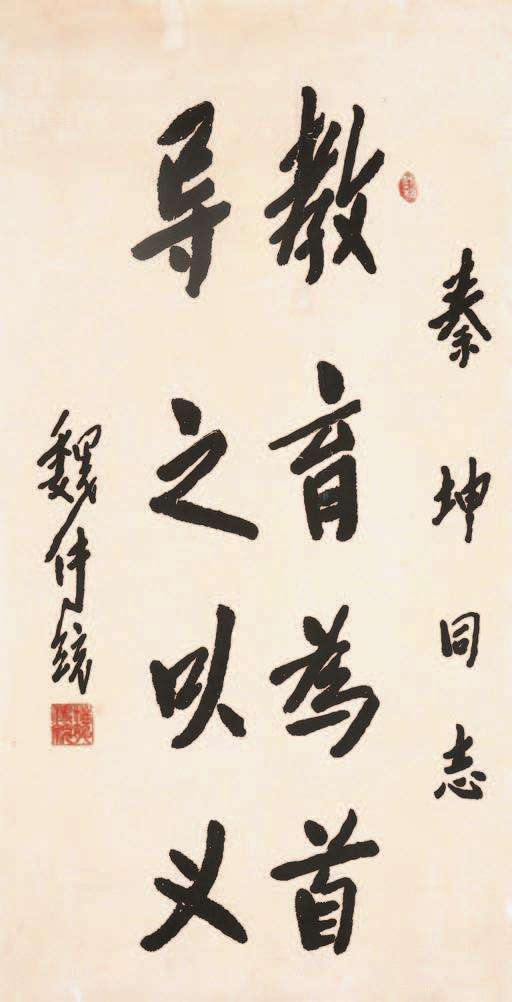 秦坤同志
教育为首
导之以义
魏传统